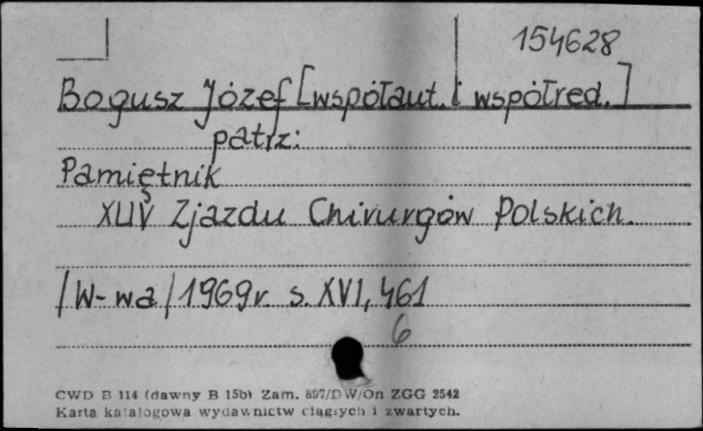 154628
Bogusz Józef [współaut. i współred.]
patrz:
Pamiętnik
XLIV Zjazdu Chirurgów Polskich.
/W-wa/1969r. s. XVI, 461
6
CWD B 114 (dawny B 15b) Zam. 897/DW/On ZGG 2542
Karta katalogowa wydawnictw ciągłych i zwartych.